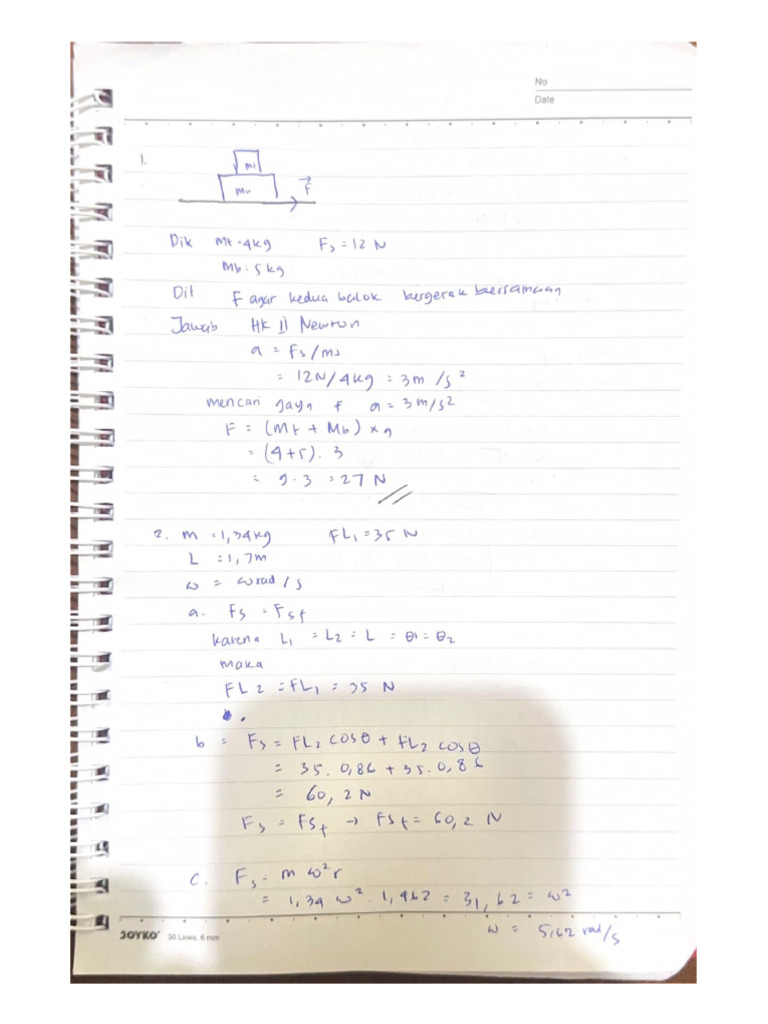 No
Date
1.
mt
Mb
F
Dik mt = 4kg Fs = 12 N
Mb = 5 kg
Dit F agar kedua balok bergerak bersamaan
Jawab Hk II Newton
a = Fs/ms
= 12N/4kg = 3m/s²
mencari gaya F a = 3m/s²
F = (Mt + Mb) × a
= (4+5). 3
= 9 . 3 = 27 N
2. m = 1,34kg FL₁ = 35 N
L = 1,7m
ω = ω rad/s
a. Fs = Fsf
karena L₁ = L₂ = L = θ₁ = θ₂
maka
FL2 = FL₁ = 35 N
b = Fs = FL₂ cosθ + FL₂ cosθ
= 35. 0,86 + 35. 0,86
= 60,2N
Fs = FSf → FSf = 60,2 N
C. Fs = m ω²r
= 1,34 ω². 1,462 = 31,62 = ω²
ω = 5,62 rad/s
JOYKO 30 Lines, 6 mm